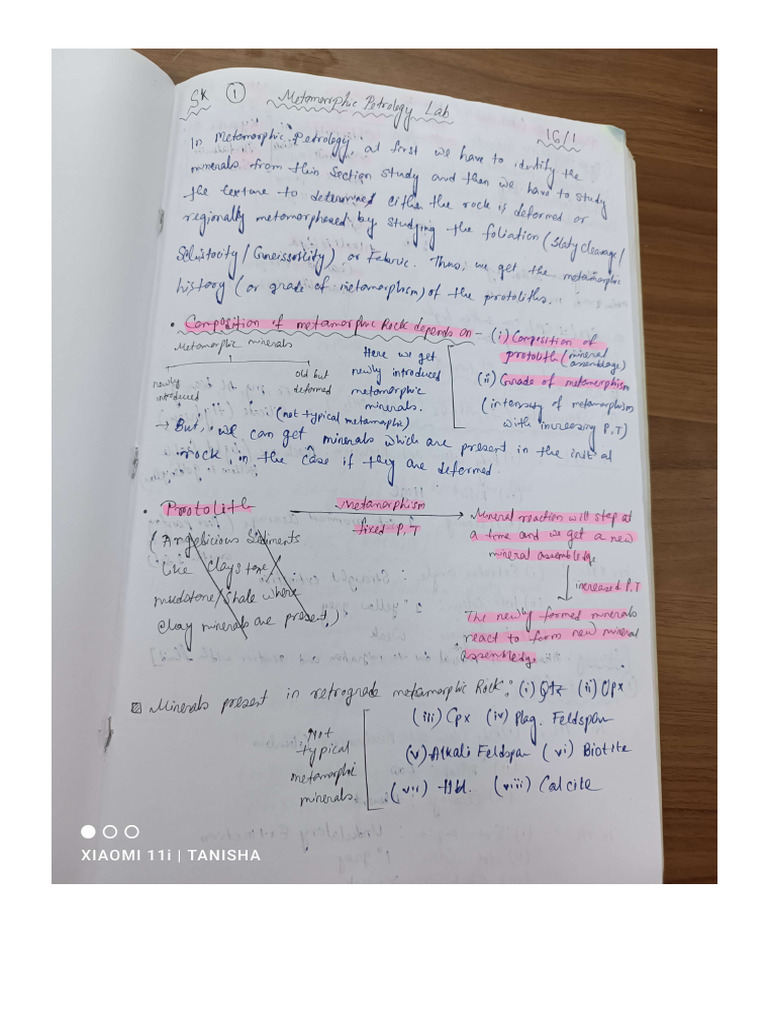 SK ① Metamorphic Petrology Lab
16/1
In Metamorphic Petrology, at first we have to identify the
minerals from thin section study and then we have to study
the texture to determined either the rock is deformed or
regionally metamorphosed by studying the foliation (Slaty cleavage/
Schistocity/Gneissosicity) or Fabric. Thus, we get the metamorphic
history (or grade of metamorphism) of the protoliths.
• Composition of metamorphic Rock depends on - (i) Composition of
protolith (mineral
assemblage)
(ii) Grade of metamorphism
(intensity of metamorphism
with increasing P,T)
Metamorphic minerals
newly
introduced
old but
deformed
Here we get
newly introduced
metamorphic
minerals.
(not typical metamorphic)
→ But, we can get minerals which are present in the initial
rock, in the case if they are deformed.
• Protolith
Metamorphism
fixed P,T
Mineral reaction will stop at
a time and we get a new
mineral assembledge
(Argelicious Sediments
like claystone/
mudstone/shale where
clay minerals are present.)
increased P,T
The newly formed minerals
react to form new mineral
assembledge.
Minerals present in retrograde metamorphic Rock: (i) Qtz (ii) Opx
(iii) Cpx (iv) Plag. Feldspar
(v) Alkali Feldspar (vi) Biotite
(vii) Hbl. (viii) Calcite
Not
typical
metamorphic
minerals.
XIAOMI 11i | TANISHA